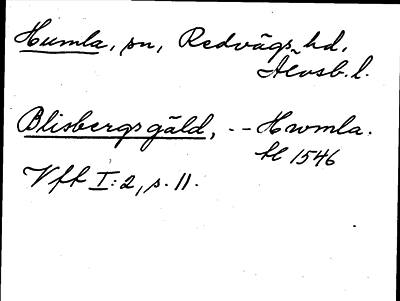 Humla, sn, Redvägs hd,
Älvsb. l.
Blisbergs gäld, -- Hwmla.
tl 1546
Vff I: 2, s. 11.